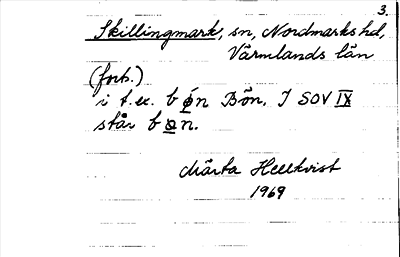 3.
Skillingmark, sn, Nordmarks hd,
Värmlands län
(forts.)
i t.ex. b ǿn Bön. I SOV IX
står b ɷn.
Märta Hellkvist
1969